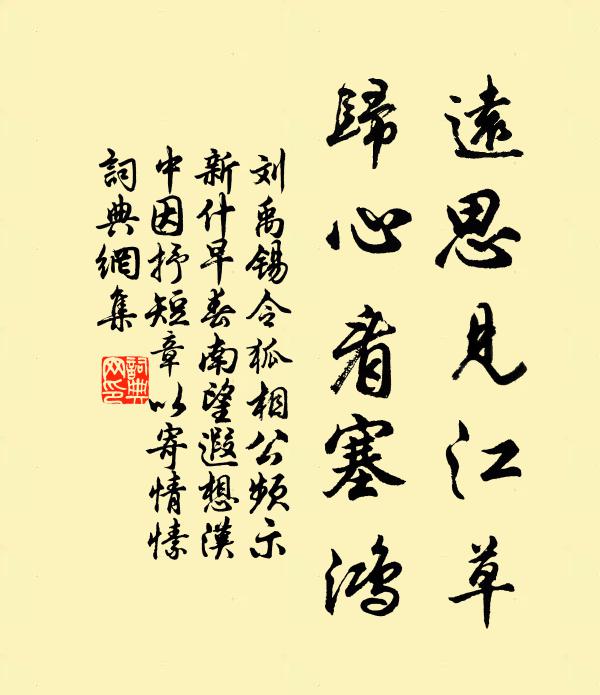 遠思見江草
歸心看塞鴻
刘禹锡令狐相公频示
新什早春南望遐想漢
中因抒短章以寄情愫
詞典網集
詞典网印